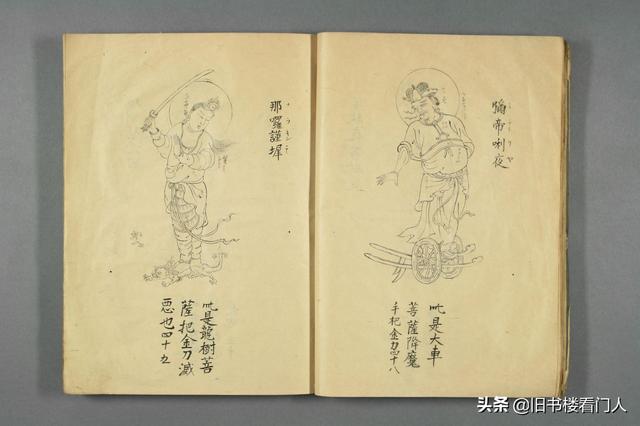 皤帝唎夜
此是大車
菩薩降魔
手把金刀四十八
那囉謹墀
此是龍樹菩
薩把金刀滅
惡也四十九
头条 @旧书楼看门人